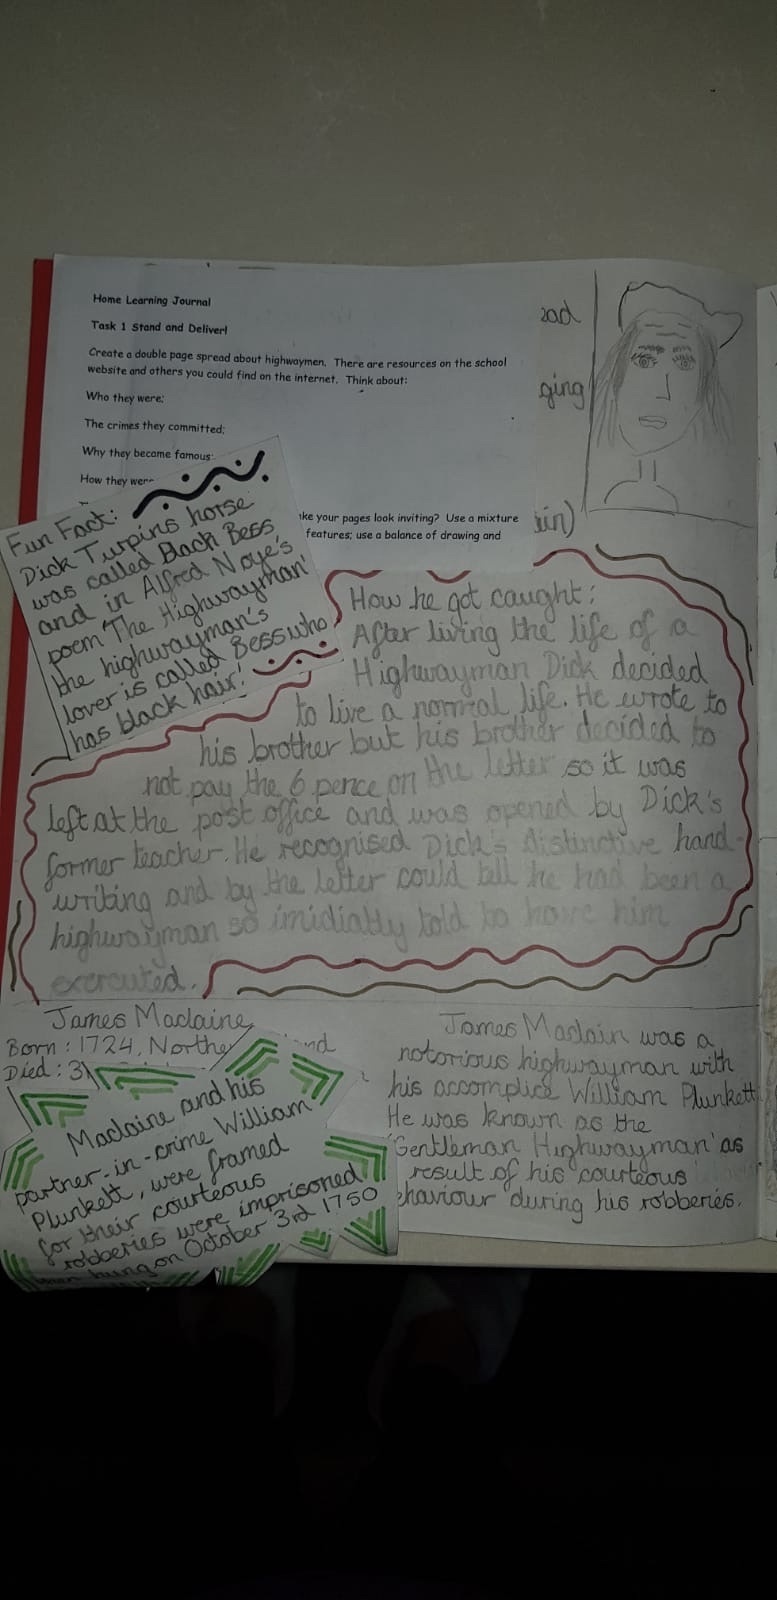 Home Learning Journal
Task 1 Stand and Deliver!
Create a double page spread about highwaymen. There are resources on the school
website and others you could find on the internet. Think about:
Who they were;
The crimes they committed;
Why they became famous;
How they were
ke your pages look inviting? Use a mixture
features; use a balance of drawing and
oad
ging
in)
Fun Fact:
Dick Turpins horse
was called Black Bess
and in Alfred Noye's
poem 'The Highwayman'
the highwayman's
lover is called Bess who
has black hair!
How he got caught:
After living the life of a
Highwayman Dick decided
to live a normal life. He wrote to
his brother but his brother decided to
not pay the 6 pence on the letter so it was
left at the post office and was opened by Dick's
former teacher. He recognised Dick's distinctive hand-
writing and by the letter could tell he had been a
highwayman so imidiatly told to have him
excrcuted.
James Maclaine
Born: 1724, Northe nd
Died: 3
Maclaine and his
partner-in-crime William
Plunkett, were framed
for their courteous
robberies were imprisoned
then hung on October 3rd 1750
James Maclain was a
notorious highwayman with
his accomplice William Plunkett
He was known as the
'Gentleman Highwayman' as
result of his courteous
ehaviour during his robberies.